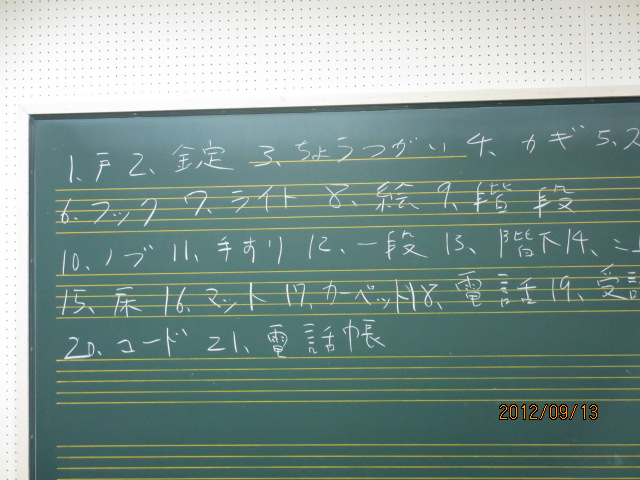 1、戸 2、錠 3、ちょうつがい 4、カギ 5、ス
6、フック 7、ライト 8、絵 9、階段
10、ノブ 11、手すり 12、一段 13、階下 14、ニ
15、床 16、マット 17、カーペット 18、電話 19、受話
20、コード 21、電話帳
2012/09/13